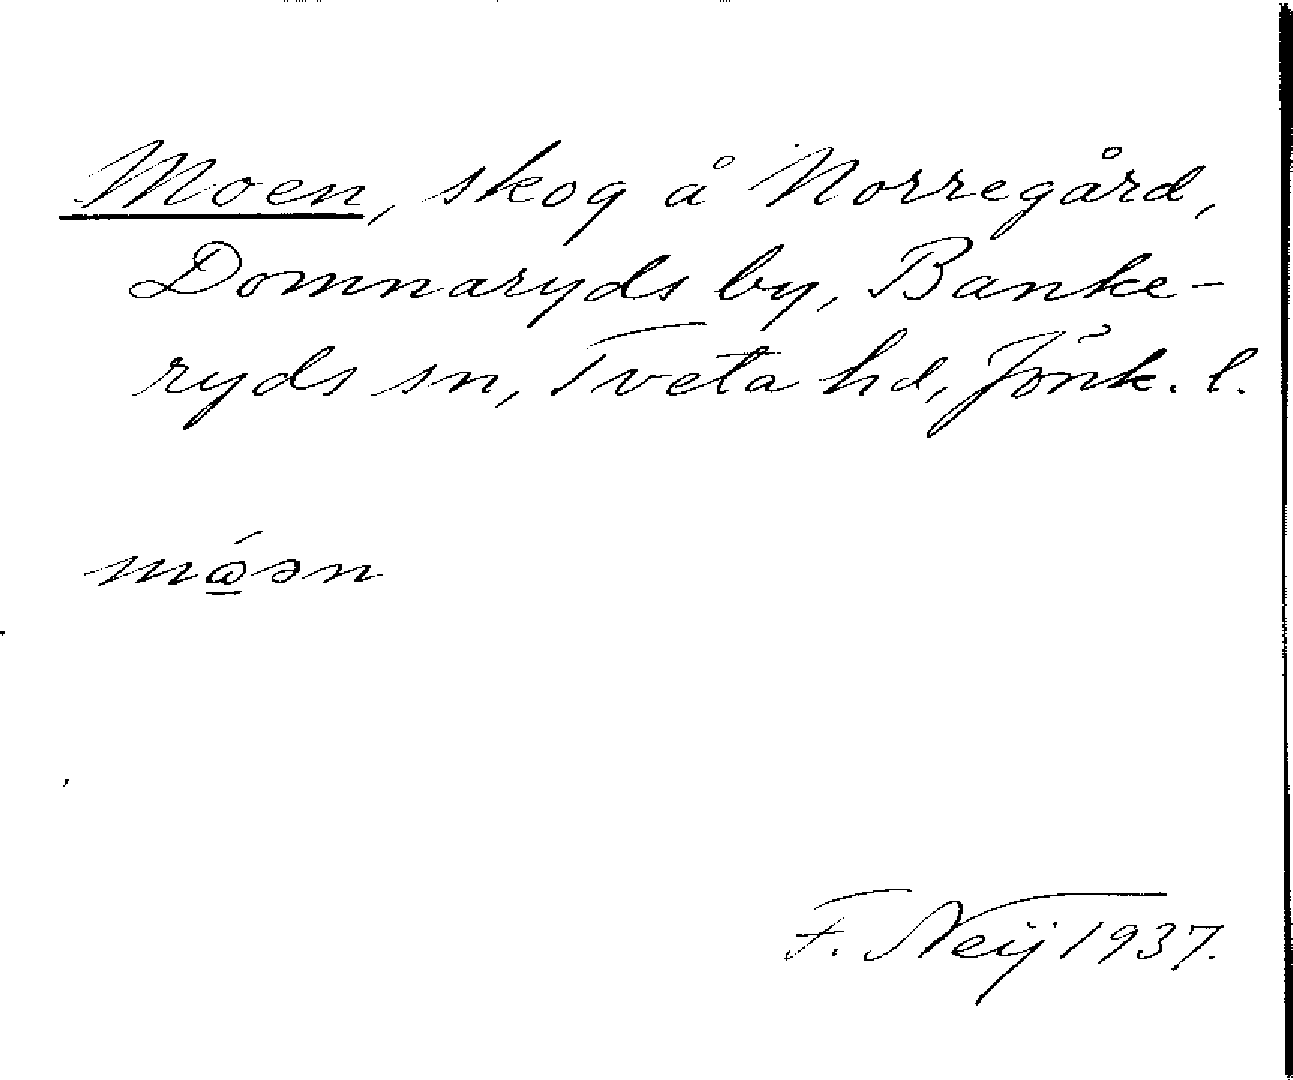 Moen, skog å Norregård,
Domnaryds by, Banke-
ryds sn, Tveta hd, Jönk. l.
F. Neij 1937.